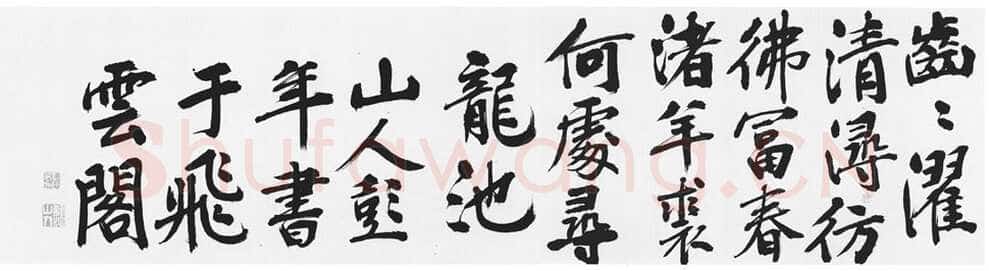 齒〻濯
清潯彷
彿富春
渚羊裘
何處尋
龍池
山人彭
年書
于飛
雲閣
Shufawang.cn